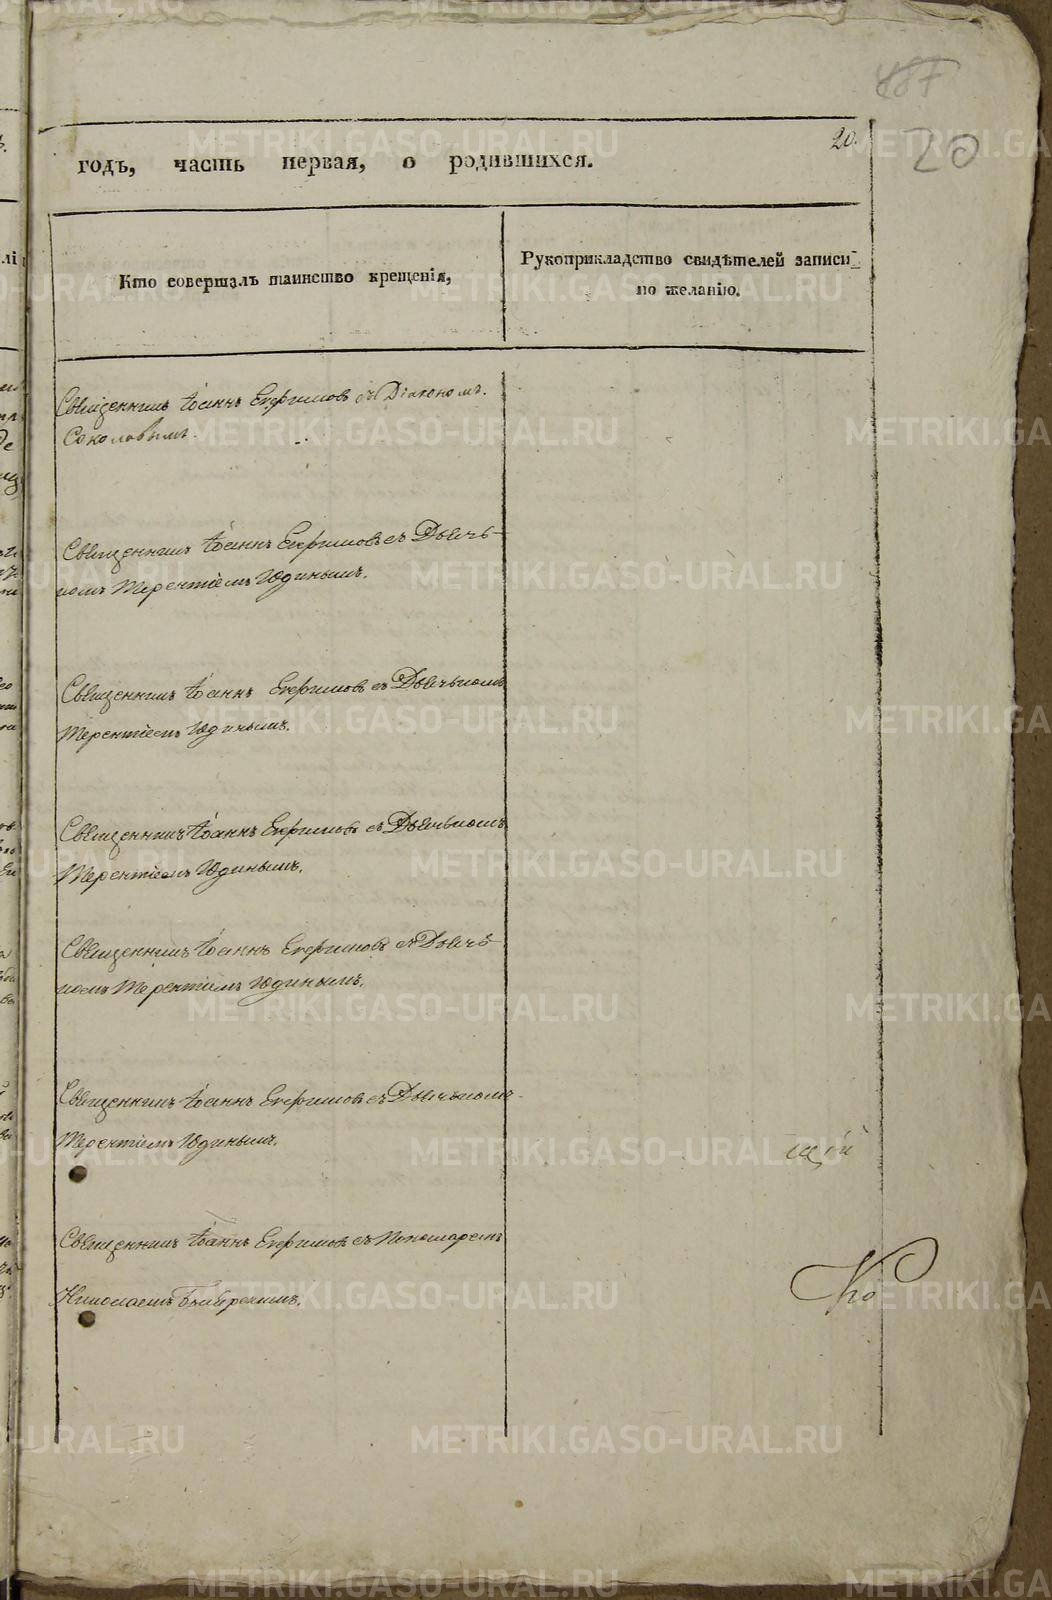 487
20.
20
годъ, часть первая, о родившихся.
Кто совершалъ таинство крещенія,
Рукоприкладство свидѣтелей записи
по желанію.
Священникъ Іоаннъ Ефимовъ съ Діакономъ
Соколовымъ.
Священникъ Іоаннъ Ефимовъ съ Дьячь-
комъ Терентіемъ Юдинымъ.
Священникъ Іоаннъ Ефимовъ съ Дьячькомъ
Терентіемъ Юдинымъ.
Священникъ Іоаннъ Ефимовъ съ Дьячькомъ
Терентіемъ Юдинымъ.
Священникъ Іоаннъ Ефимовъ съ Дьячь-
комъ Терентіемъ Юдинымъ.
Священникъ Іоаннъ Ефимовъ съ Дьячькомъ
Терентіемъ Юдинымъ.
щій
Священникъ Іоаннъ Ефимовъ съ Пономаремъ
Николаемъ
Ко
METRIKI.GASO-URAL.RU